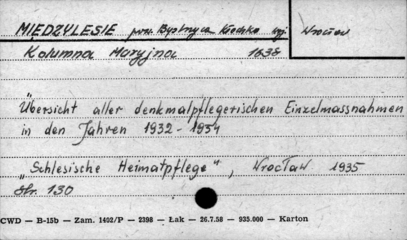 MIĘDZYLESIE pow. Bystrzyca Kłodzka woj. Wrocław
Kolumna Maryjna 1638
„Übersicht aller denkmalpflegerischen Einzelmassnahmen
in den Jahren 1932 - 1934
„Schlesische Heimatpflege", Wrocław 1935
str. 130
CWD — B-15b — Zam. 1402/P — 2398 — Łak — 26.7.58 — 935.000 — Karton